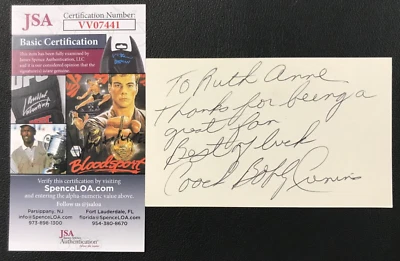 JSA Certification Number
VV07441
Basic Certification
This item has been fully examined by
James Spence Authentication, LLC,
and it is our considered opinion that the
signature(s) is/are genuine.
Bloodsport
Verify this certification by visiting
SpenceLOA.com
and entering the alpha-numeric value above.
Follow us @jsaloa
Parsippany, NJ Fort Lauderdale, FL
info@SpenceLOA.com florida@SpenceLOA.com
973-898-1300 954-380-8670
JSA
Authentication
To Ruth Anne
Thanks for being a
great fan
Best of luck
Coach Bobby Cremins